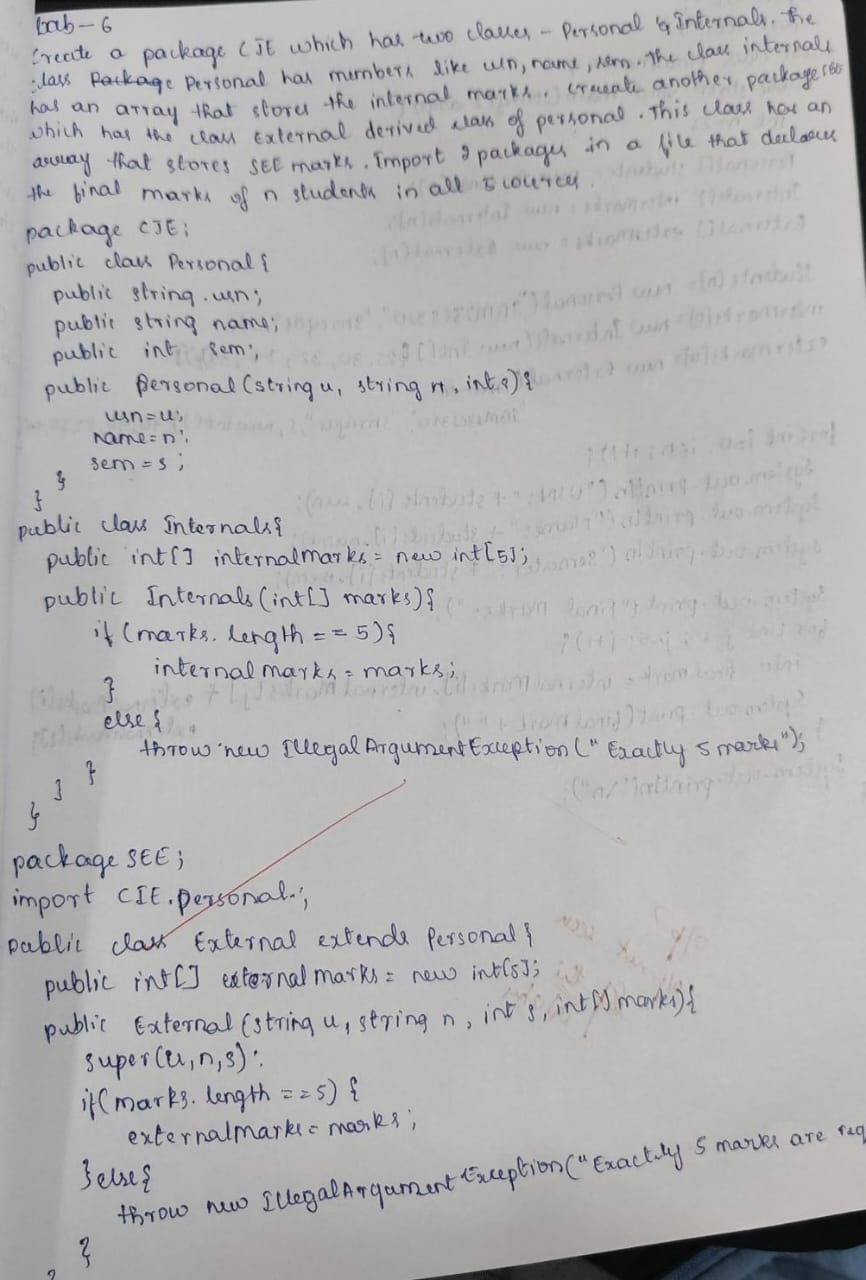 Lab-6
Create a package CIE which has two classes - Personal & Internals. The
class Package Personal has members like usn, name, sem. The class internals
has an array that stores the internal marks. Create another package SEE
which has the class External derived class of personal. This class has an
array that stores SEE marks. Import 2 packages in a file that declares
the final marks of n students in all 5 courses.
package CIE;
public class Personal {
public string usn;
public string name;
public int sem;
public Personal (string u, string n, int s) {
usn = u;
name = n;
sem = s;
}
}
public class Internals {
public int[] internalmarks = new int[5];
public Internals (int[] marks) {
if (marks.length == 5) {
internalmarks = marks;
}
else {
throw new IllegalArgumentException (" Exactly 5 marks");
}
}
}
package SEE;
import CIE.personal;
public class External extends Personal {
public int[] externalmarks = new int[5];
public External (string u, string n, int s, int[] marks) {
super(u,n,s);
if (marks.length == 5) {
externalmarks = marks;
} else {
throw new IllegalArgumentException (" Exactly 5 marks are req
}
}